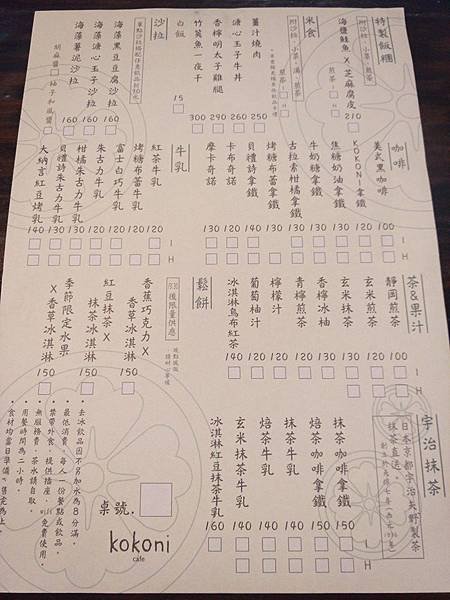 特製飯糰
附沙拉、小菜、煎茶
海鹽鮭魚 X 芝麻腐皮 210
煎茶
米食
附沙拉、小菜、湯、煎茶
薑汁燒肉 250
溏心玉子牛丼 260
香檸明太子雞腿 290
竹莢魚一夜干 300
白飯 15
沙拉
海藻黑豆豆腐沙拉 160
海藻溏心玉子沙拉 160
海藻薯泥沙拉
胡麻醬 柚子和風醬
咖啡
美式黑咖啡 100
KOKONI拿鐵 120
焦糖奶油拿鐵 130
牛奶糖拿鐵 130
古拉索柑橘拿鐵 130
烤糖布蕾拿鐵 130
貝禮詩拿鐵 140
卡布奇諾 120
摩卡奇諾 130
I
H
牛乳
紅茶牛乳 120
烤糖布蕾牛乳 120
富士白巧牛乳 120
朱古力牛乳 120
柑橘朱古力牛乳 130
貝禮詩朱古力牛乳 130
大納言紅豆烤乳 140
I
H
茶&果汁
靜岡煎茶 100
玄米煎茶 120
玄米抹茶 120
香檸冰柚 130
青檸煎茶 120
檸檬汁 120
葡萄柚汁 120
冰淇淋烏布紅茶 140
I
H
鬆餅
後限量供應
現點現做
請耐心等候
香蕉巧克力 X
香草冰淇淋 150
紅豆抹茶 X
抹茶冰淇淋
季節限定水果
X 香草冰淇淋 150
宇治抹茶
日本京都宇治矢野製茶
抹茶直送。
抹茶咖啡拿鐵 150
焙茶咖啡拿鐵 150
抹茶牛乳 140
焙茶牛乳 140
玄米抹茶牛乳 140
冰淇淋紅豆抹茶牛乳 160
I
H
桌號.
kokoni
cafe
・去冰飲品因不另加水為8分滿。
・最低消費，每人一份餐點或飲品。
・禁帶外食，提供插座，wifi免費使用。
・無服務費，茶水請自取。
・用餐時間為二小時。
・食材均當日準備，售完為止。